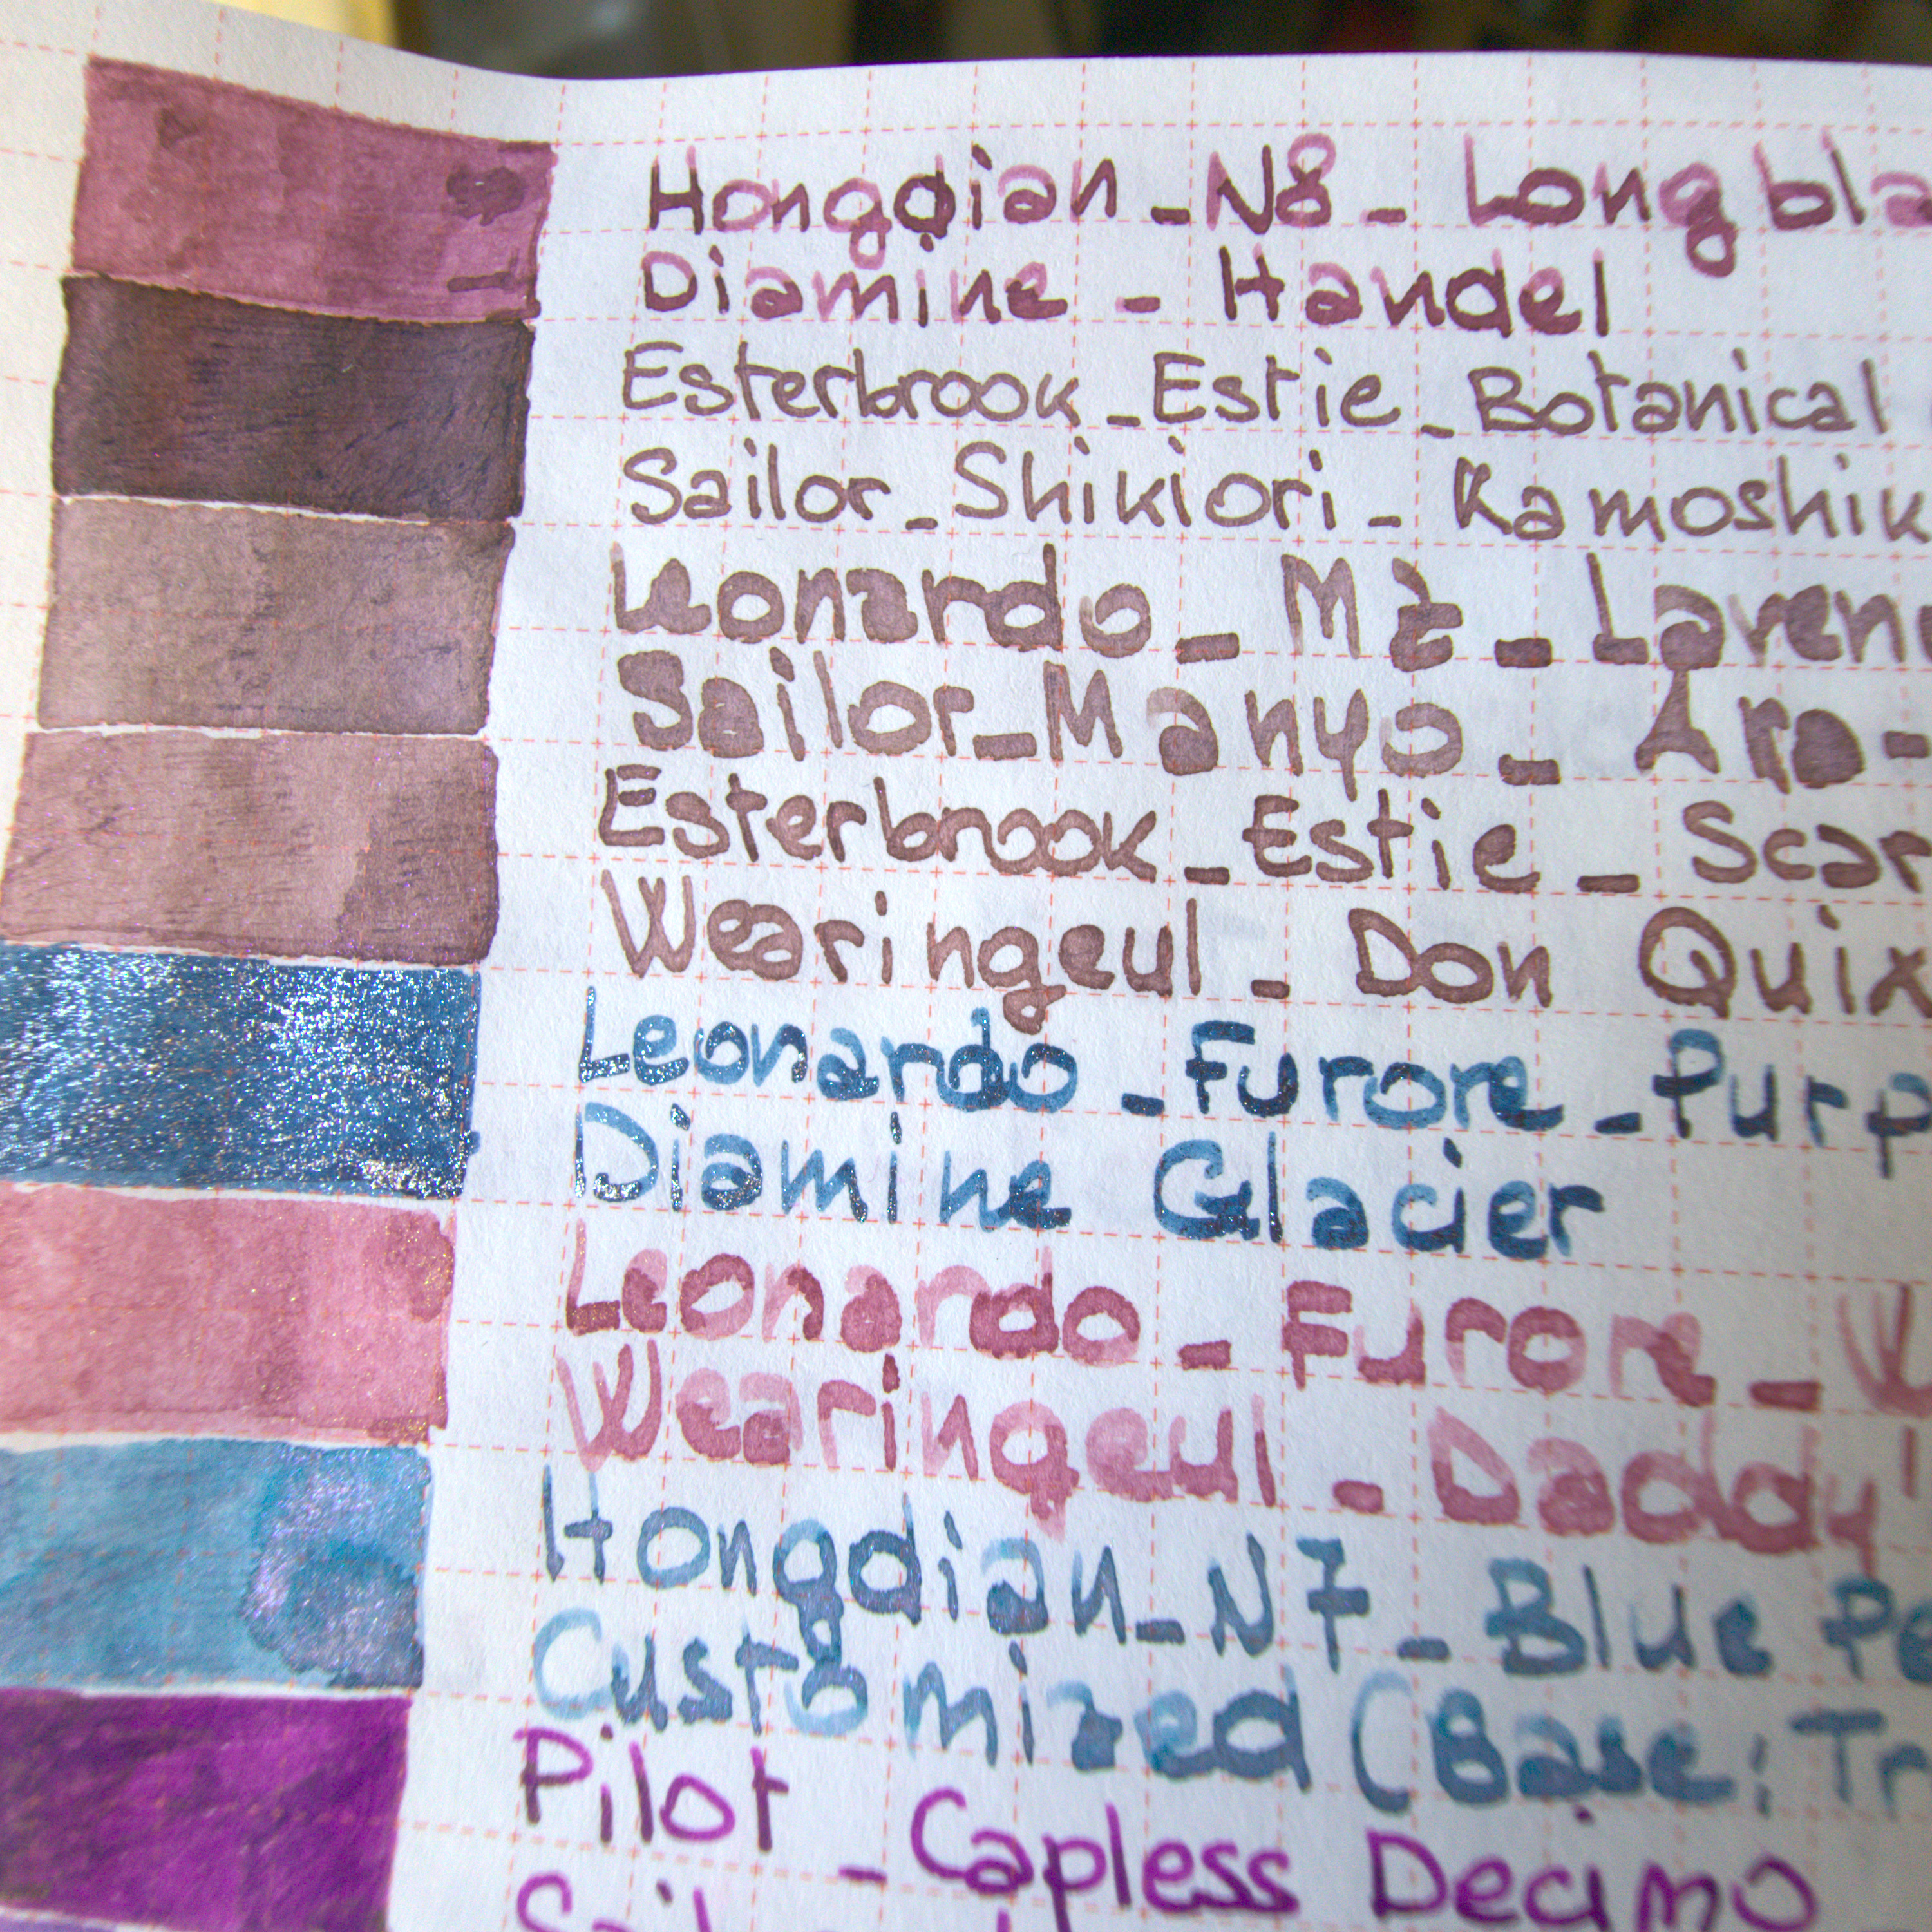 Hongdian_N8_Long bla
Diamine - Handel
Esterbrook_Estie_Botanical
Sailor_Shikiori_Kamoshik
Leonardo_MZ_Laven
Sailor_Manyo_Aro-
Esterbrook_Estie_Scar
Wearingeul_Don Quix
Leonardo_Furore_Purp
Diamine Glacier
Leonardo_Furore_W
Wearingeul_Daddy'
Hongdian_N7_Blue Pe
Customized (Base: Tr
Pilot_Capless Decimo